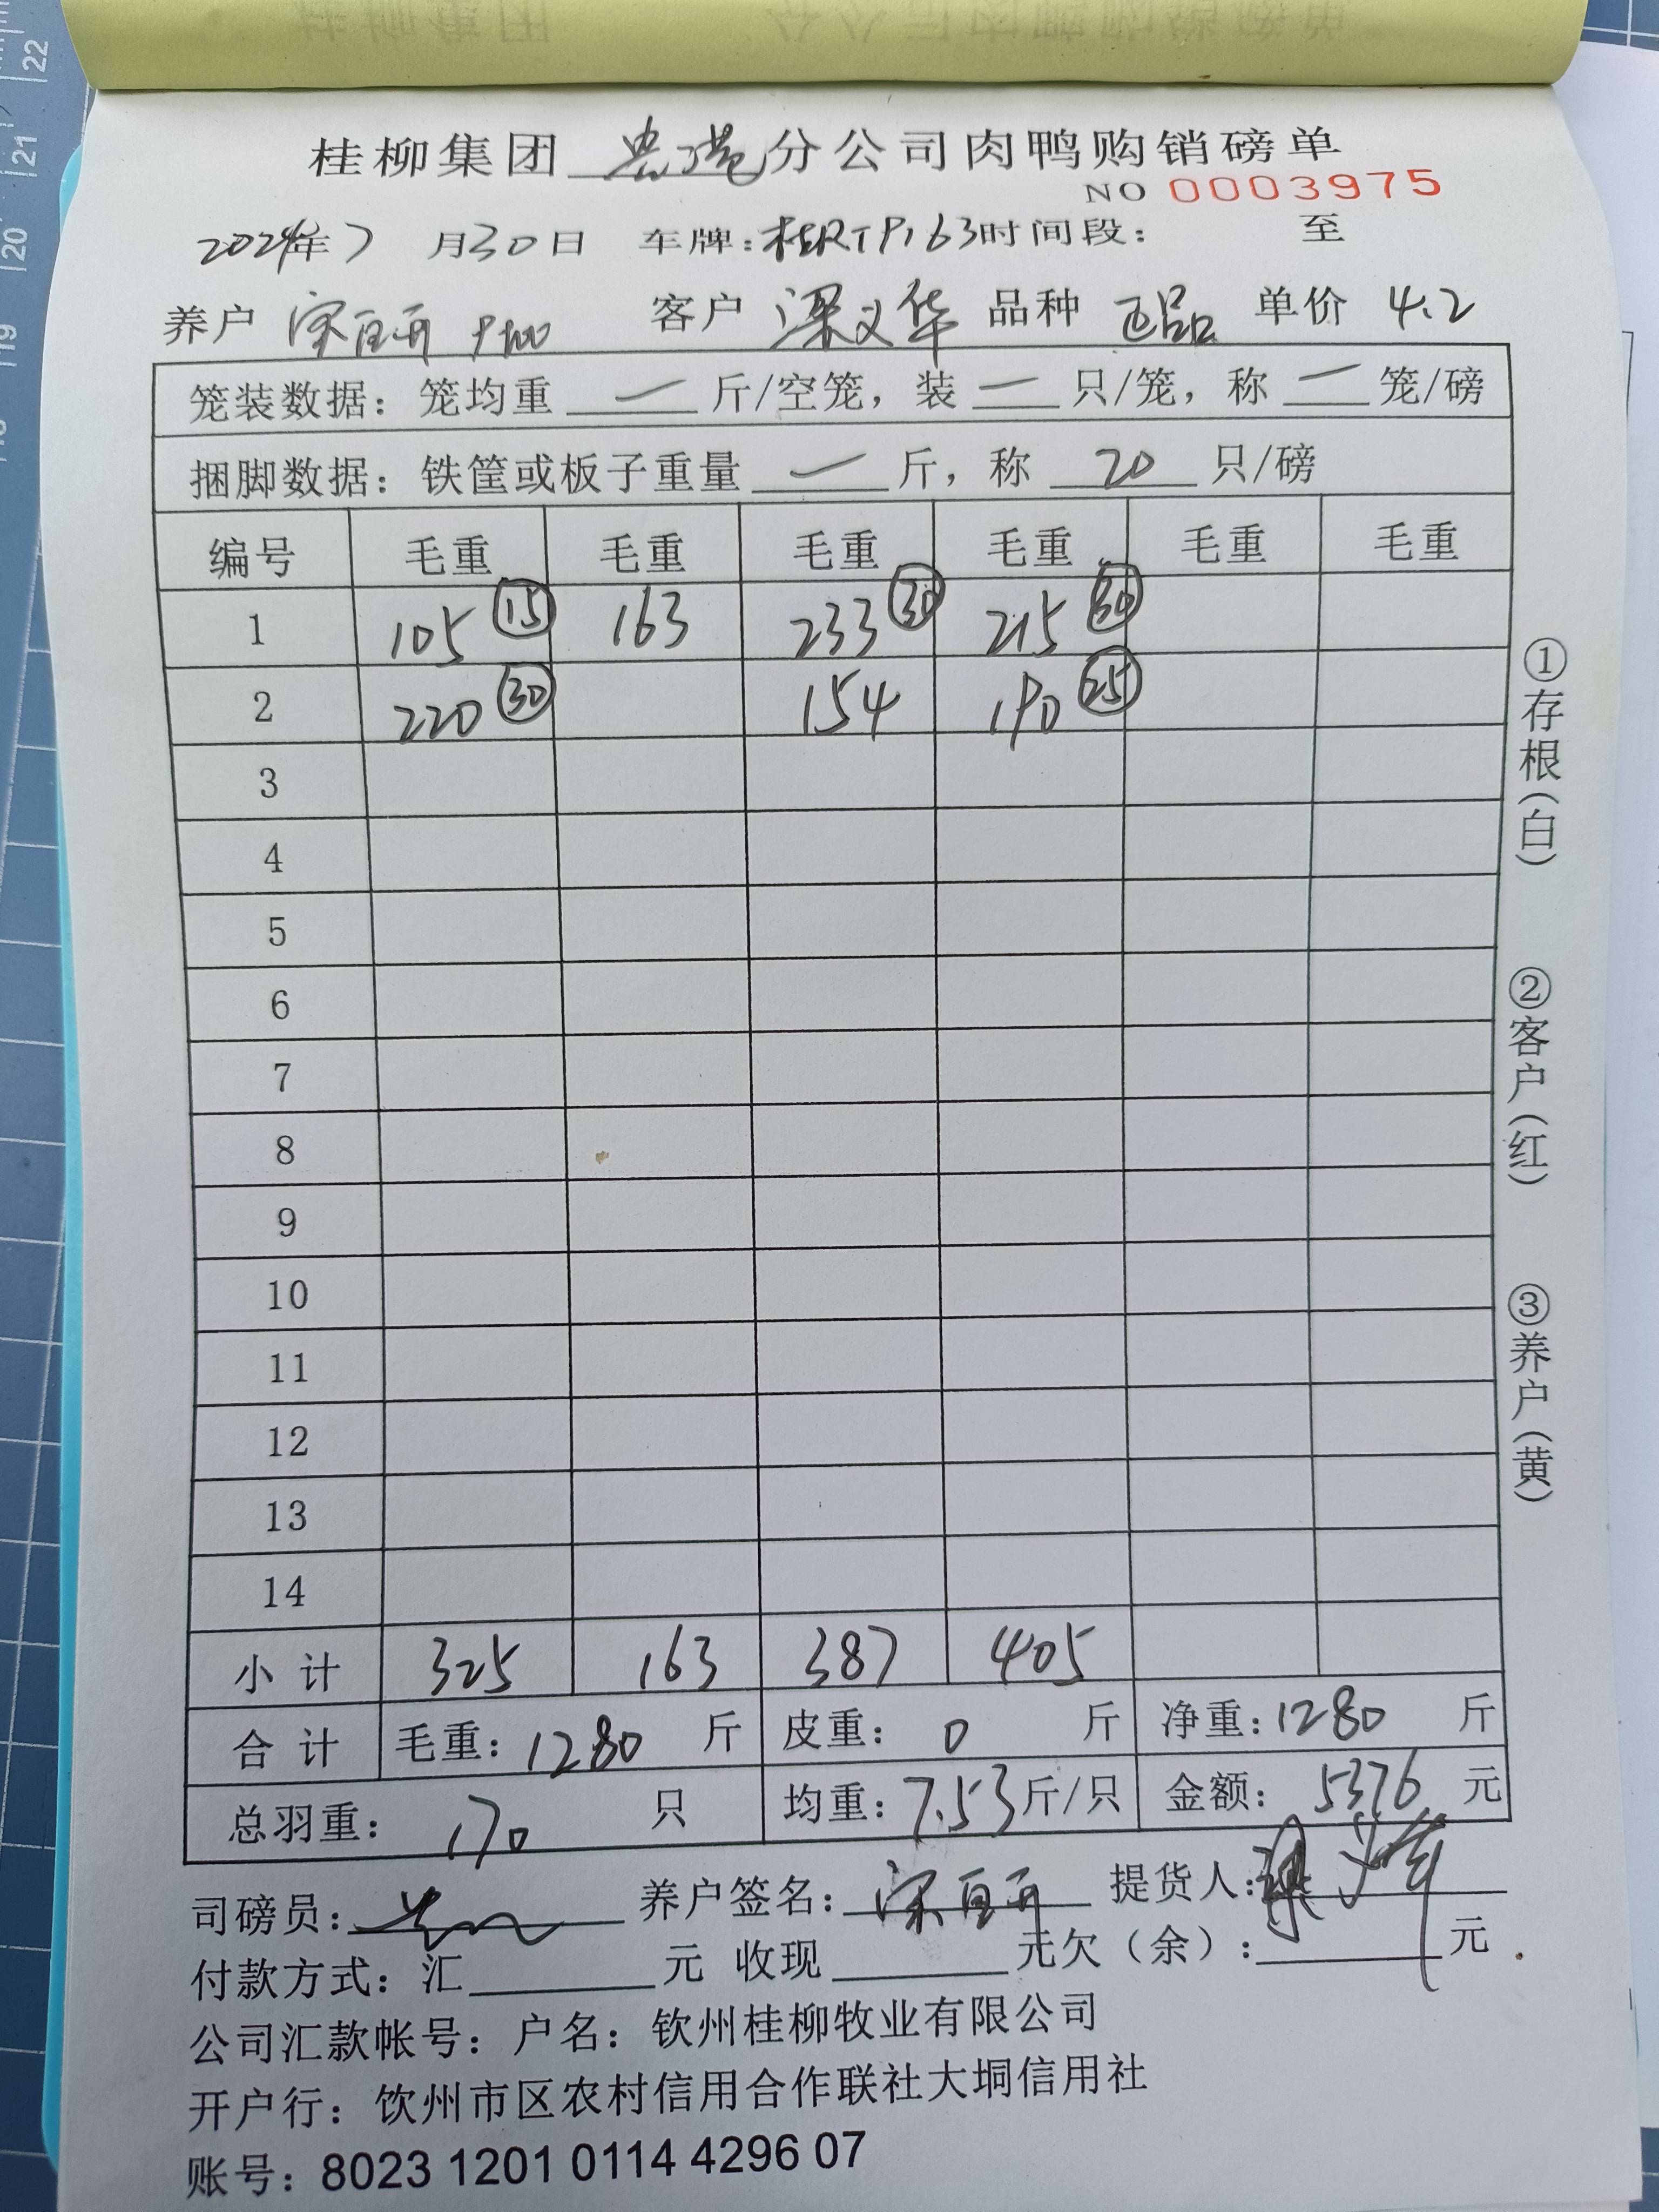 22
21
20
19
桂柳集团 贵港 分公司肉鸭购销磅单
NO 0003975
2024年7月30日 车牌:桂RTP163 时间段: 至
养户 宋 客户 梁义华 品种 正品 单价 4.2
笼装数据:笼均重 — 斤/空笼,装 — 只/笼,称 — 笼/磅
捆脚数据:铁筐或板子重量 — 斤,称 20 只/磅
编号 毛重 毛重 毛重 毛重 毛重 毛重
1 105 ⑮ 163 233 ㉚ 215 ㉚
2 220 ㉚ 154 190 ㉕
3
4
5
6
7
8
9
10
11
12
13
14
小计 325 163 387 405
合计 毛重:1280 斤 皮重: 0 斤 净重:1280 斤
总羽重: 170 只 均重:7.53斤/只 金额: 5376 元
司磅员: 养户签名:宋 提货人:梁义华
付款方式:汇 元 收现 元欠(余): 元
公司汇款帐号:户名:钦州桂柳牧业有限公司
开户行:钦州市区农村信用合作联社大垌信用社
账号:8023 1201 0114 4296 07
①存根(白)
②客户(红)
③养户(黄)